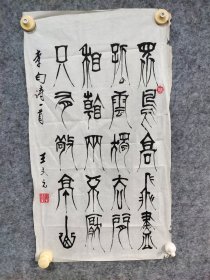 眾鳥高飛盡
孤雲獨去閒
相看兩不厭
只有敬亭山
李白詩一首
王